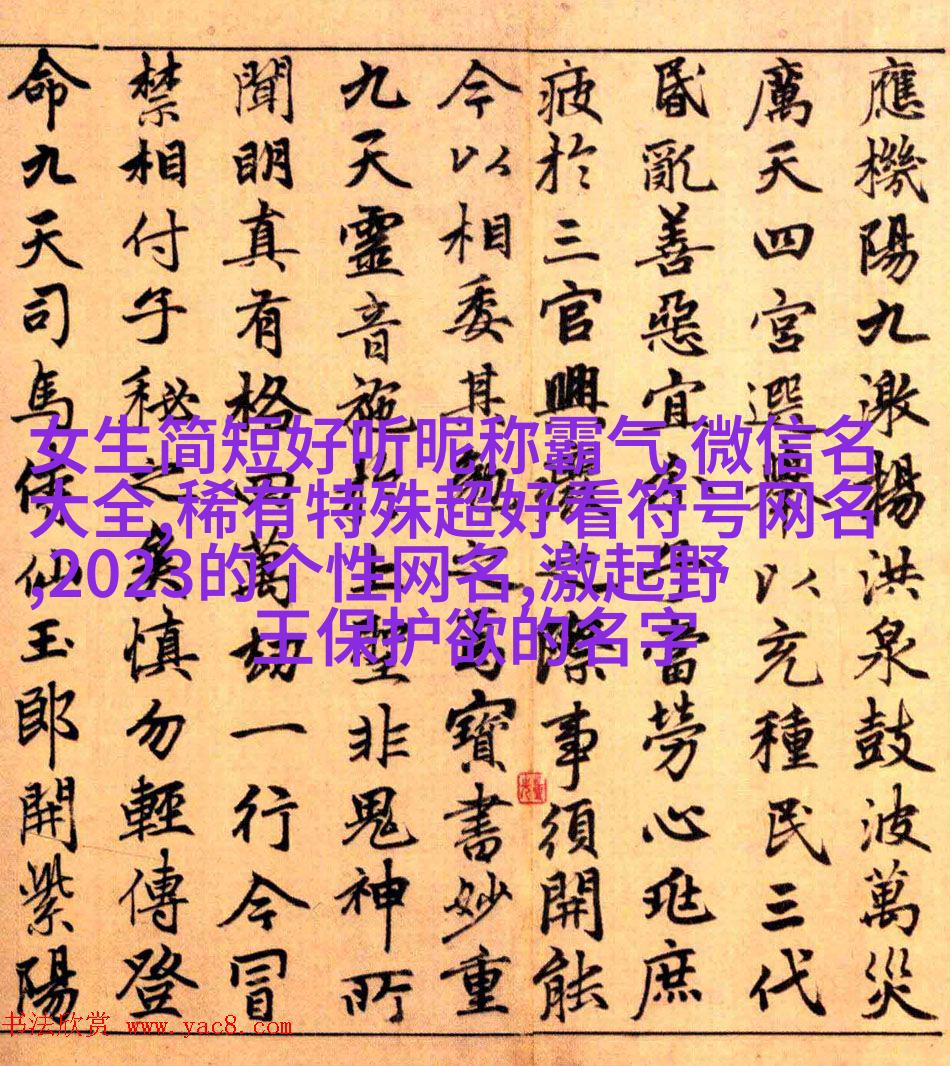 應機陽九激揚洪泉鼓波萬災
厲天四宮選舉以充種民三代
昏亂善惡宜當勞心庶
疲於三官興之際事須開能
今以相委其寶書妙重
九天靈音施於上聖非鬼神所
聞明真有格而萬劫一行今冒
禁相付子秘之矣慎勿輕傳登
命九天司馬侍仙玉郎開紫陽
女生简短好听昵称霸气,微信名
大全,稀有特殊超好看符号网名
,2023的个性网名,激起野
王保护欲的名字
书法欣赏 www.yac8.com